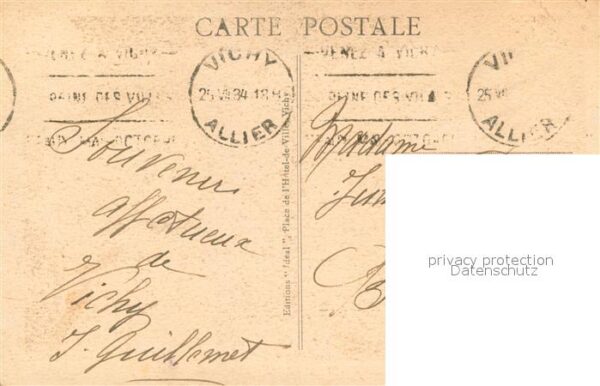 CARTE POSTALE
VENEZ A VICHY
VICHY
25 VII 34
ALLIER
VENEZ A VICHY
25 VII
ALLIER
Souvenir
affectueux
de
Vichy
J. Guillemet
Editions "Idéal", Place de l'Hôtel-de-Ville, Vichy
Madame
B
privacy protection
Datenschutz